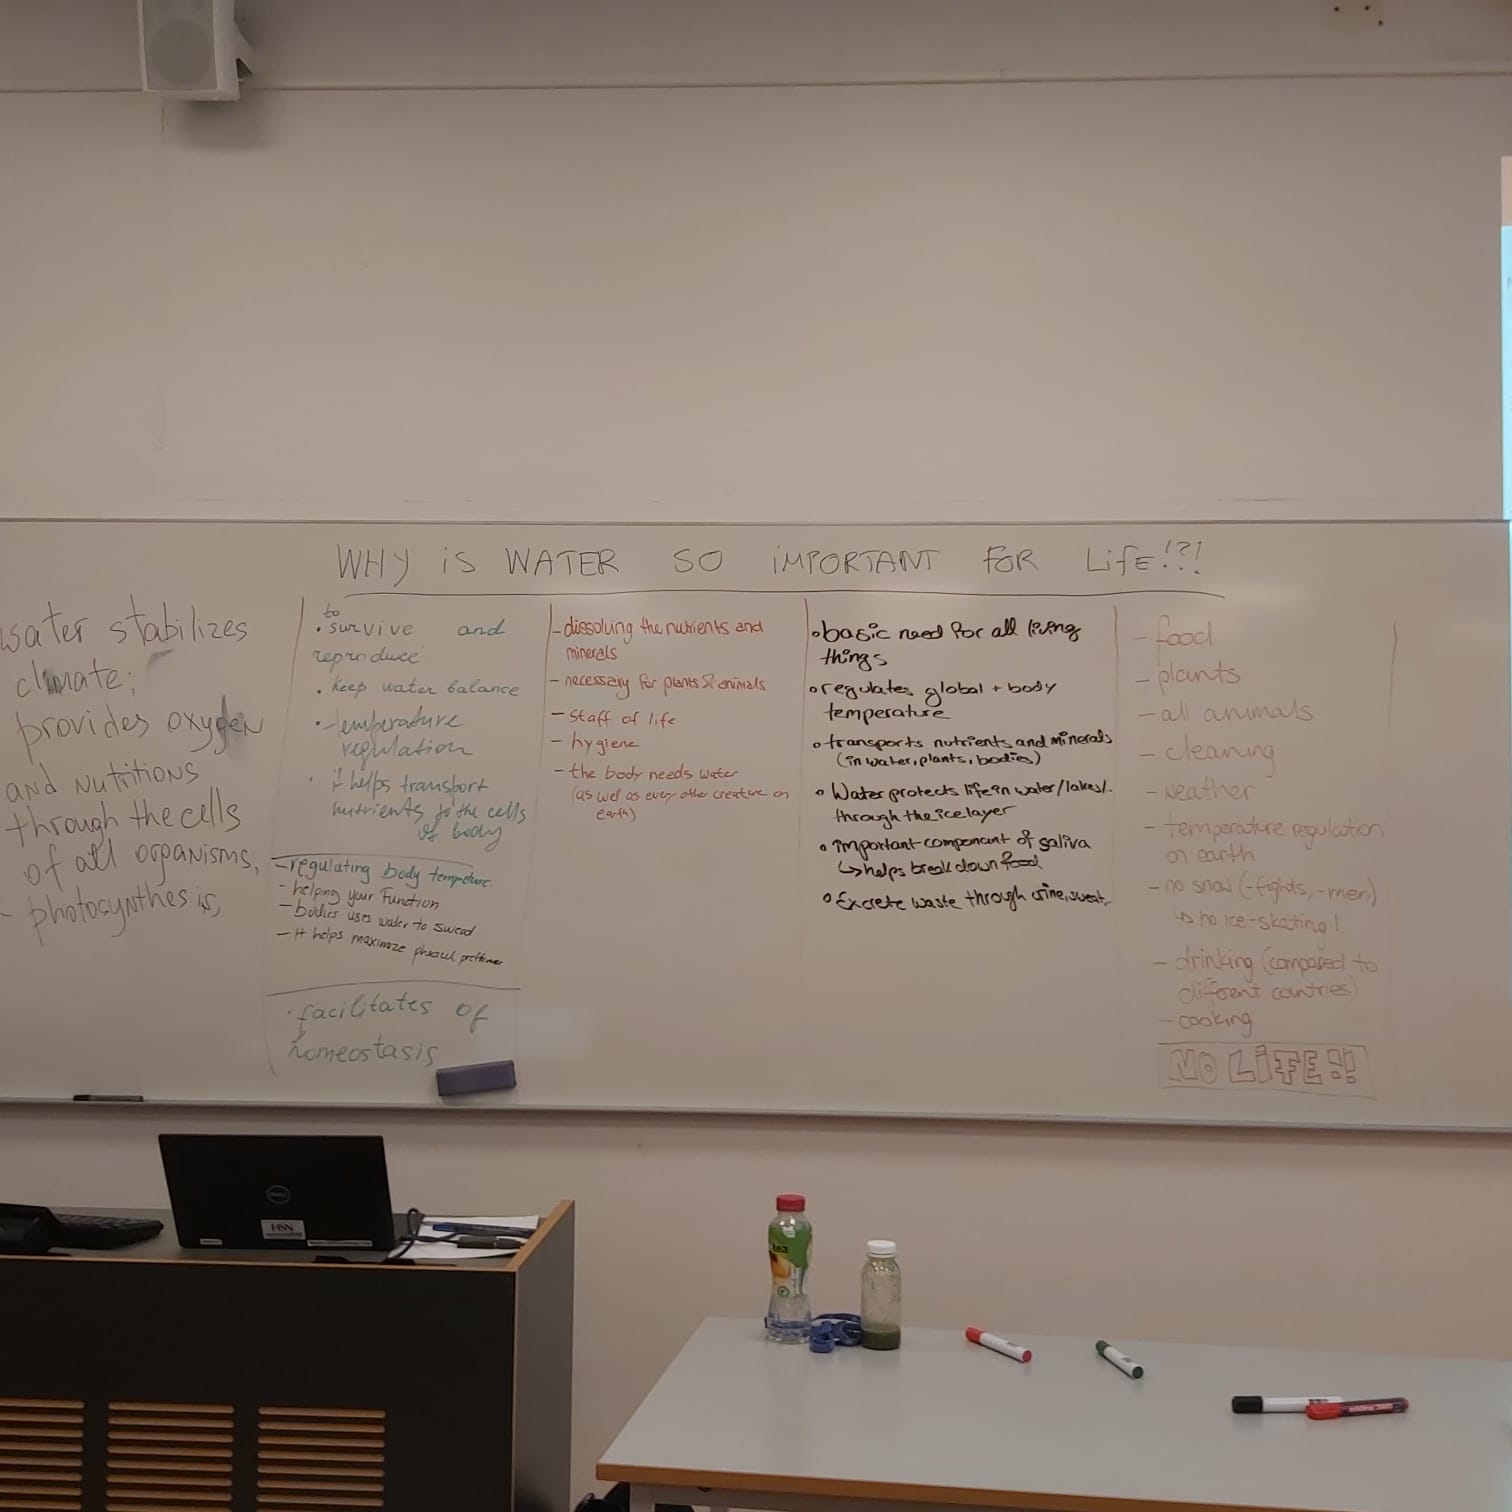 WHY iS WATER SO iMPORTANT FOR LifE!?!
water stabilizes
climate;
provides oxygen
and nutritions
through the cells
of all organisms,
- photosynthesis,
to
• survive and
reproduce
• keep water balance
• temperature
regulation
• it helps transport
nutrients to the cells
of body
- regulating body
- helping your function
- bodies uses water to swead
- It helps maximize
• facilitates of
homeostasis
- dissolving the nutrients and
minerals
- necessary for plants & animals
- staff of life
- hygiene
- the body needs water
(as wel as every other creature on
earth)
• basic need for all living
things
• regulates global + body
temperature
• transports nutrients and minerals
(in water, plants, bodies)
• Water protects life in water/lakes/..
through the ice layer
• important component of saliva
↳ helps break down food
• Excrete waste through urine, sweat,..
- food
- plants
- all animals
- cleaning
- weather
- temperature regulation
on earth
- no snow (-fights, -men)
↳ no ice-skating!
- drinking (compared to
different countries)
- cooking
NO LiFE!!
DELL
tea